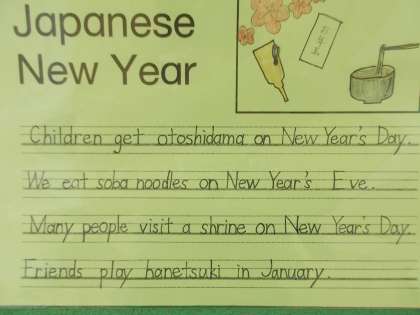 Japanese
New Year
Children get otoshidama on New Year's Day.
We eat soba noodles on New Year's Eve.
Many people visit a shrine on New Year's Day.
Friends play hanetsuki in January.